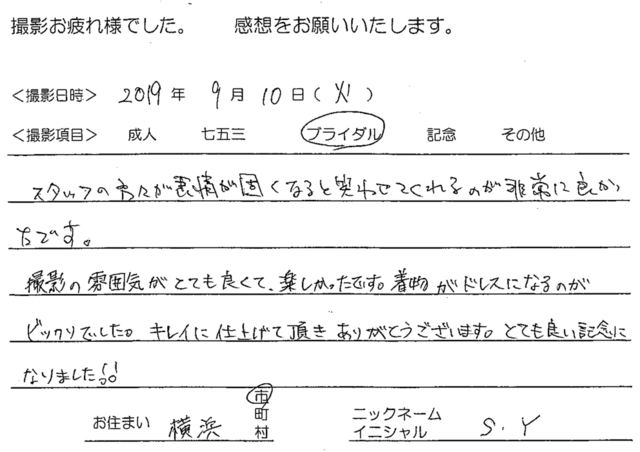 撮影お疲れ様でした。 感想をお願いいたします。
<撮影日時> 2019 年 9 月 10 日 ( 火 )
<撮影項目> 成人 七五三 ブライダル 記念 その他
スタッフの方々が表情が固くなると笑わせてくれるのが非常に良かっ
たです。
撮影の雰囲気がとても良くて、楽しかったです。着物がドレスになるのが
ビックリでした。キレイに仕上げて頂きありがとうございます。とても良い記念に
なりました!!
お住まい 横浜 市
町
村
ニックネーム
イニシャル S.Y